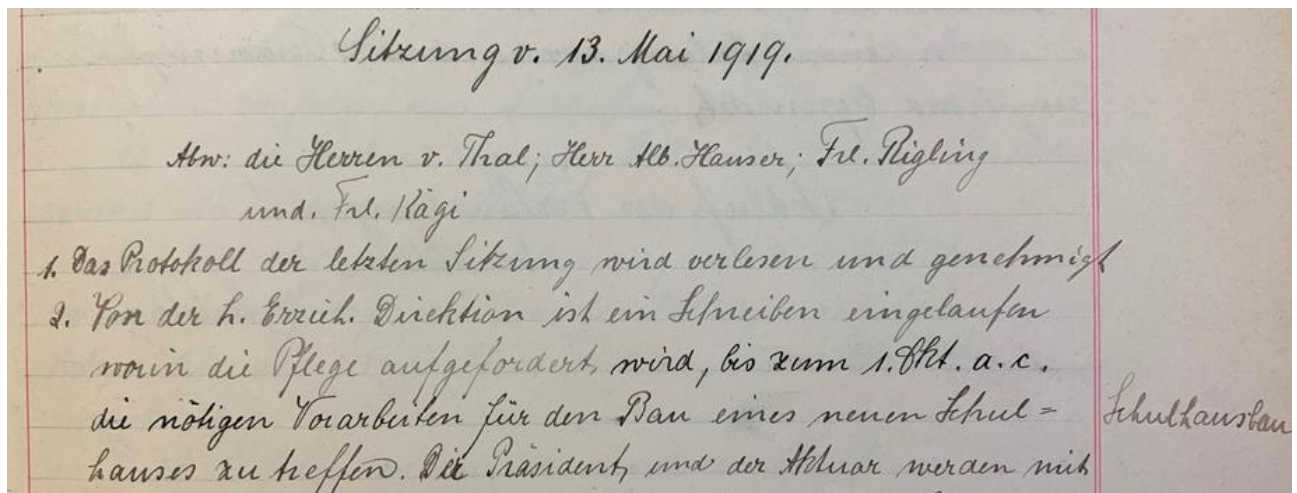 Sitzung v. 13. Mai 1919.
Abw: die Herren v. Thal; Herr Alb. Hauser; Frl. Rigling
und. Frl. Kägi
1. Das Protokoll der letzten Sitzung wird verlesen und genehmigt
2. Von der h. Erzieh. Direktion ist ein Schreiben eingelaufen
worin die Pflege aufgefordert wird, bis zum 1. Okt. a. c.
die nötigen Vorarbeiten für den Bau eines neuen Schul=
hauses zu treffen. Der Präsident und der Aktuar werden mit
Schulhausbau